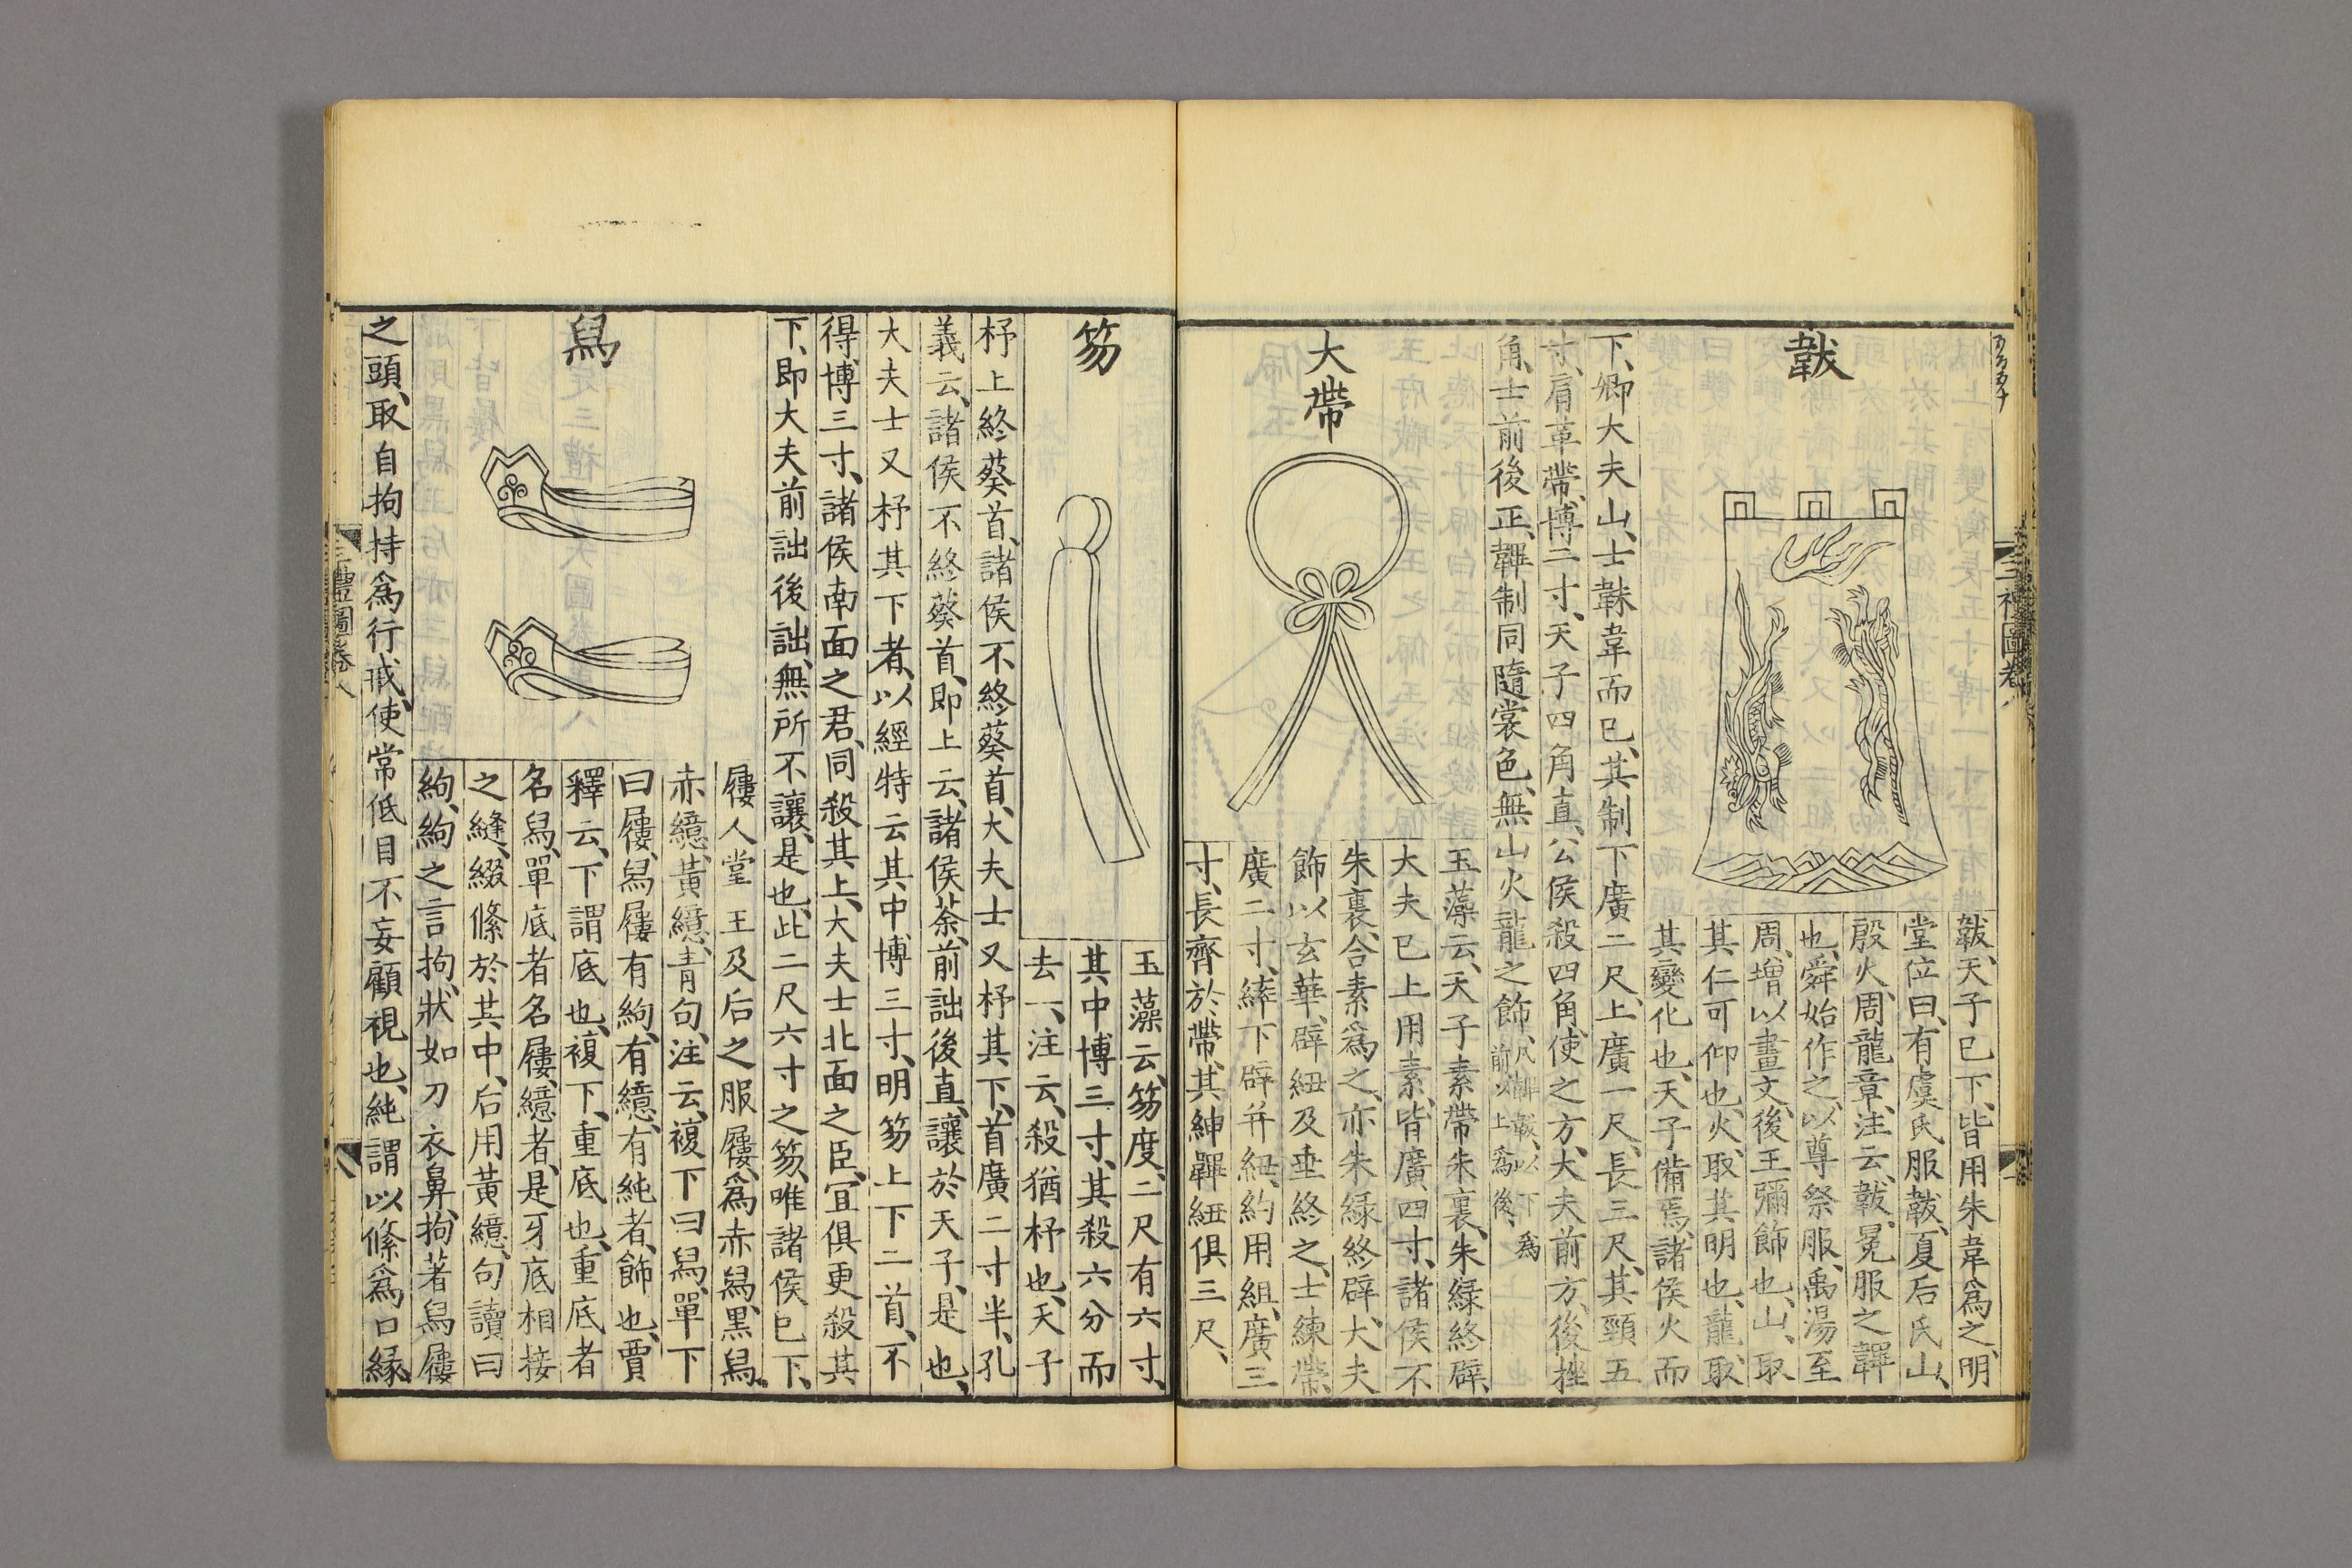 韍
韍、天子已下、皆用朱韋爲之、明
堂位曰、有虞氏服韍、夏后氏山、
殷火、周龍章、注云、韍、冕服之韠
也、舜始作之、以尊祭服、禹湯至
周、增以畫文、後王彌飾也、山、取
其仁可仰也、火、取其明也、龍、取
其變化也、天子備焉、諸侯火而
下、卿大夫山、士韎韋而已、其制下廣二尺、上廣一尺、長三尺、其頸五
寸、肩革帶、博二寸、天子四角直、公侯殺四角、使之方、大夫前方、後挫
角、士前後正、韠制同隨裳色、無山火龍之飾、凡韠韍、以下爲
前、以上爲後、
大帶
玉藻云、天子素帶朱裏、朱綠終辟、
大夫已上用素、皆廣四寸、諸侯不
朱裏、合素爲之、亦朱綠終辟、大夫
飾以玄華、辟紐及垂終之、士練帶、
廣二寸、繂下辟并紐、約用組、廣三
寸、長齊於帶、其紳韠紐俱三尺、
笏
玉藻云、笏度、二尺有六寸、
其中博三寸、其殺六分而
去一、注云、殺猶杼也、天子
杼上終葵首、諸侯不終葵首、大夫士又杼其下、首廣二寸半、孔
義云、諸侯不終葵首、即上云、諸侯荼、前詘後直、讓於天子、是也、
大夫士又杼其下者、以經特云其中博三寸、明笏上下二首、不
得博三寸、諸侯南面之君、同殺其上、大夫士北面之臣、宜俱更殺其
下、即大夫前詘後詘、無所不讓、是也、此二尺六寸之笏、唯諸侯已下、
舄
屨人掌王及后之服屨、爲赤舄、黑舄、
赤繶、黃繶、青句、注云、複下曰舄、單下
曰屨、舄屨有絇、有繶、有純者、飾也、賈
釋云、下謂底也、複下、重底也、重底者
名舄、單底者名屨、繶者、是牙底相接
之縫、綴絛於其中、后用黃繶、句讀曰
絇、絇之言拘、狀如刀衣鼻、拘著舄屨
之頭、取自拘持爲行戒、使常低目不妄顧視也、純謂以絛爲口緣、
三禮圖卷八